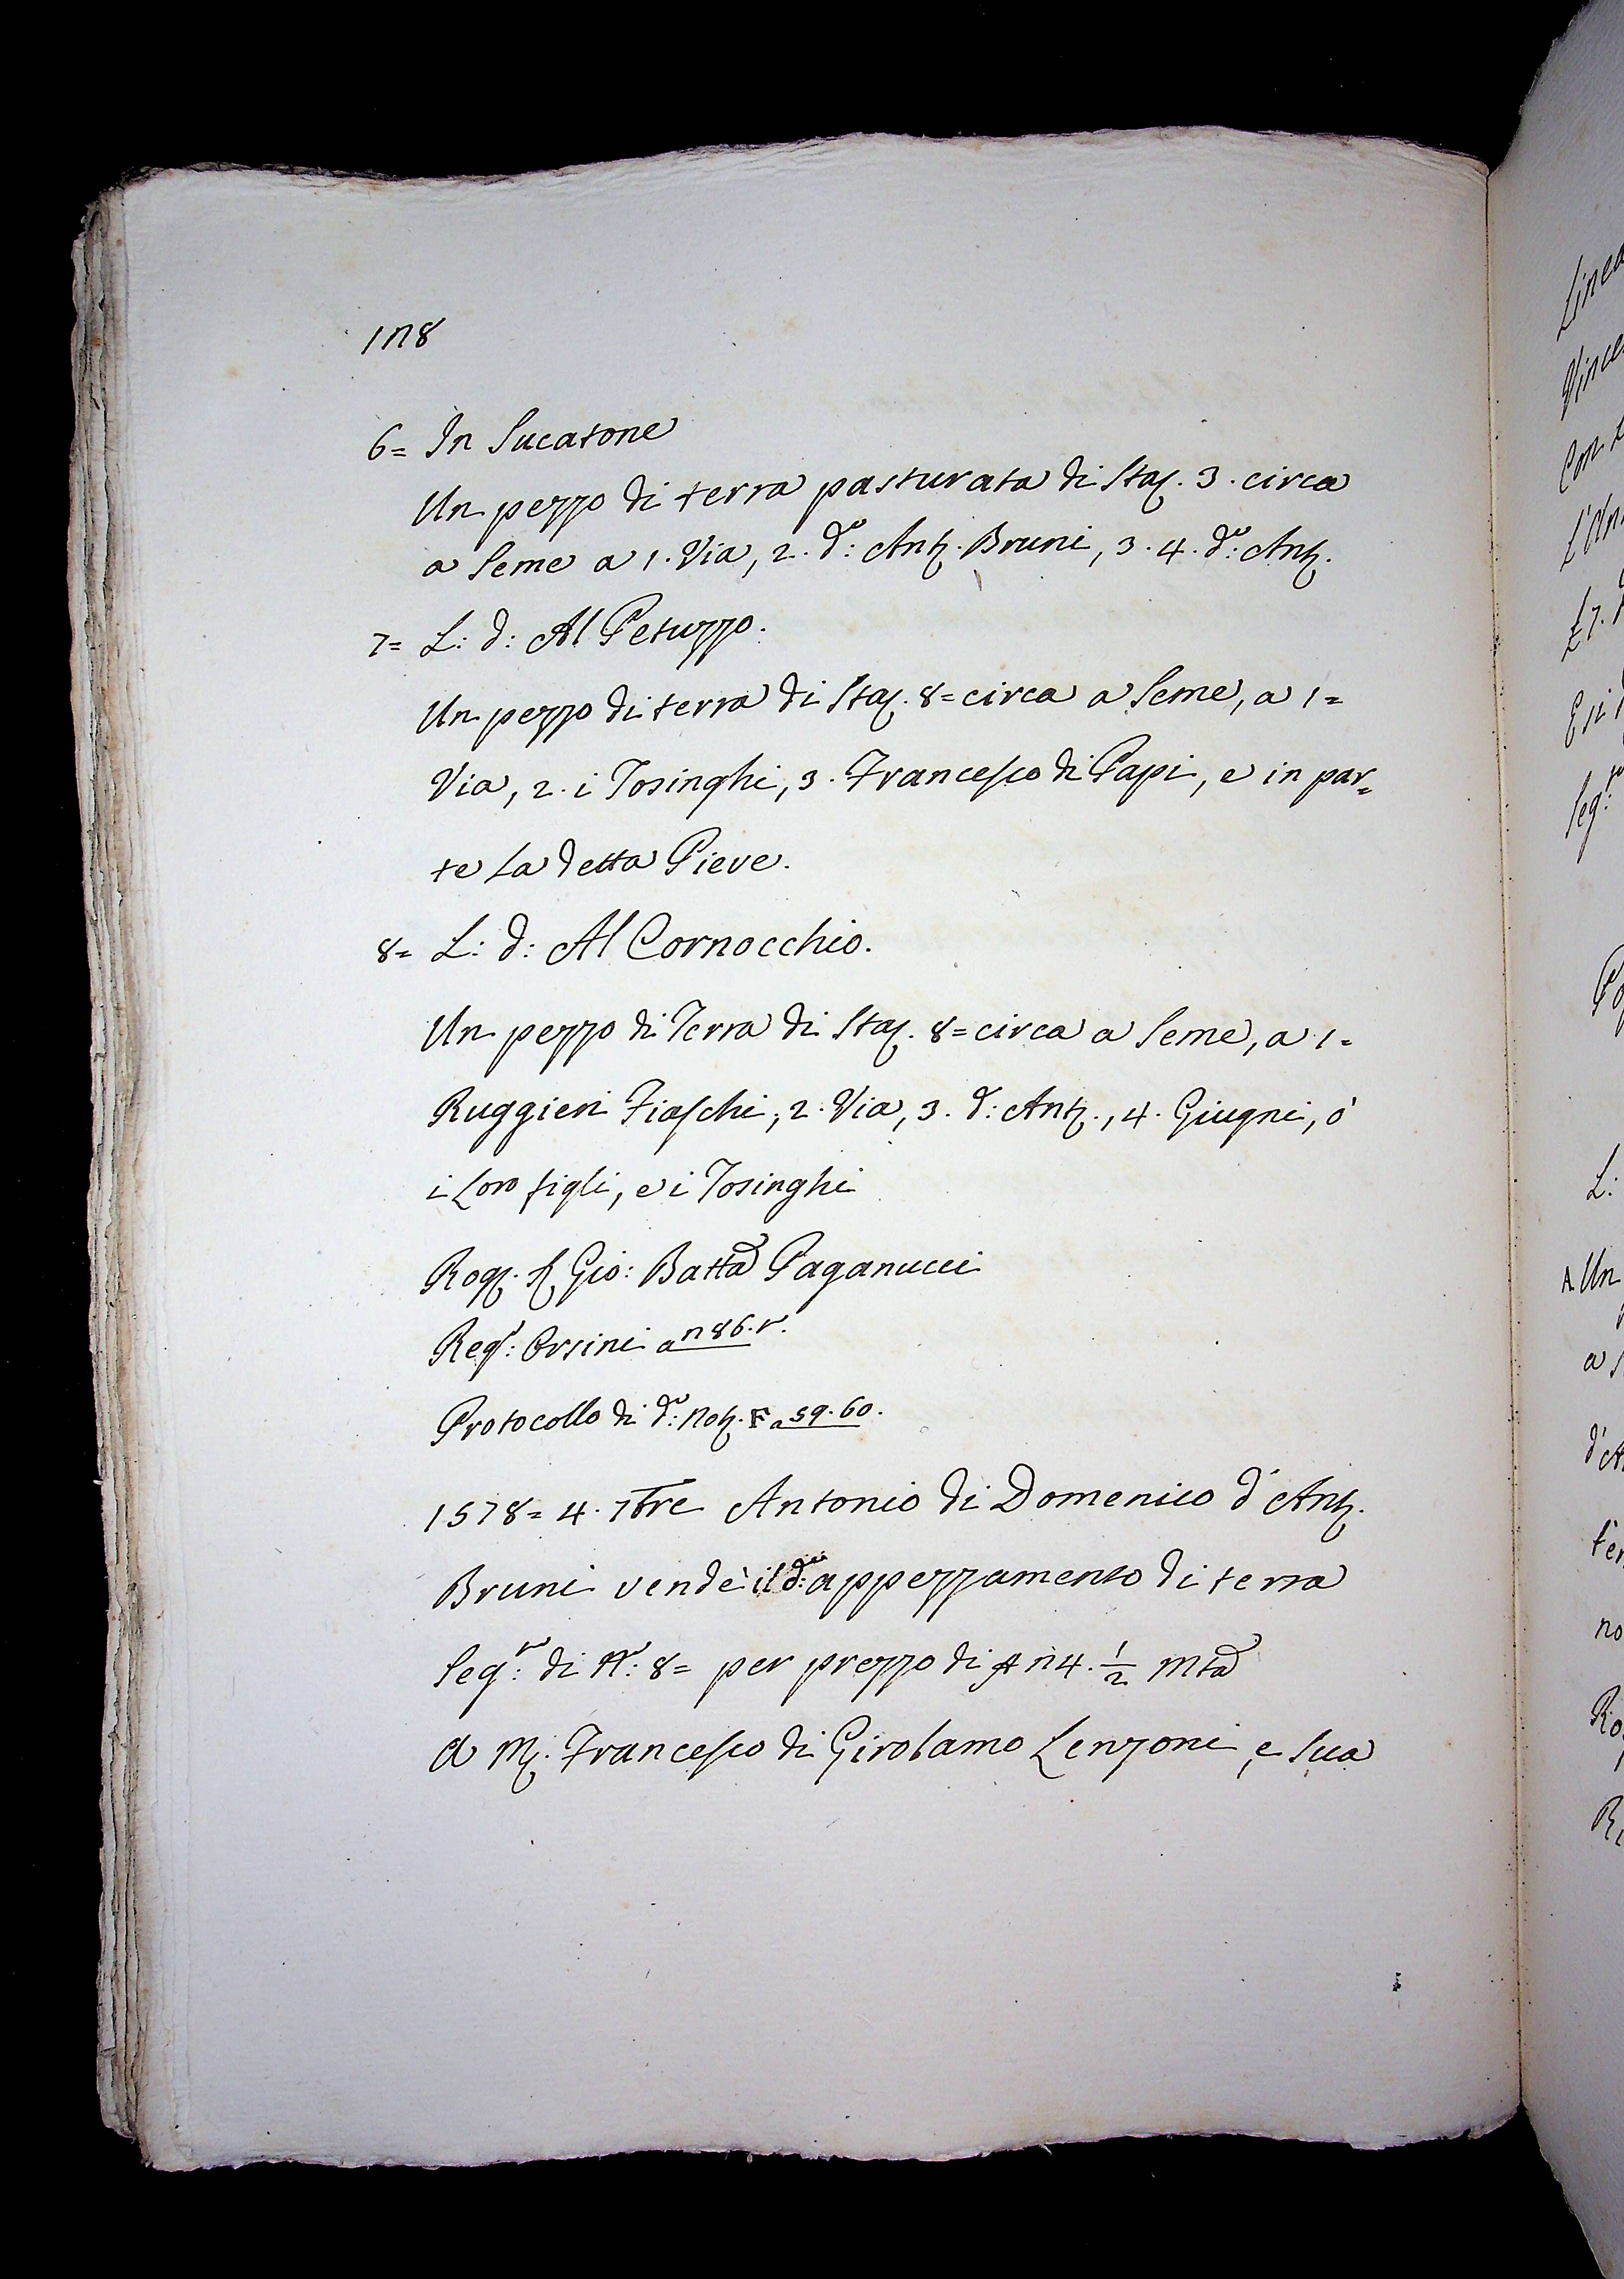 178
6= In Sucatone
Un pezzo di terra pasturata di Staj. 3. circa
a Seme a 1. Via, 2. d:º Antº. Bruni, 3. 4. d:º Antº.
7= L: d: Al Petuzzo.
Un pezzo di terra di Staj. 8= circa a Seme, a 1=
Via, 2. i Tosinghi, 3. Francesco di Papi, e in par=
te La detta Pieve.
8= L: d: Al Cornocchio.
Un pezzo di Terra di Staj. 8= circa a Seme, a 1=
Ruggieri Fiaschi, 2. Via, 3. d: Antº., 4. Giugni, ò
i Loro figli, e i Tosinghi
Rog. Gio: Batta Paganucci
Reg: Orsini a 786. r.
Protocollo di d:º Not. F a 59. 60.
1578= 4. 7bre Antonio di Domenico d'Antº.
Bruni vendè il d:º appezzamento di terra
Seg:º di N:º 8= per prezzo di 74. 1/2 mta
A M. Francesco di Girolamo Lenzoni, e Sua
Linea
Vince
L:
A. Un
a
no